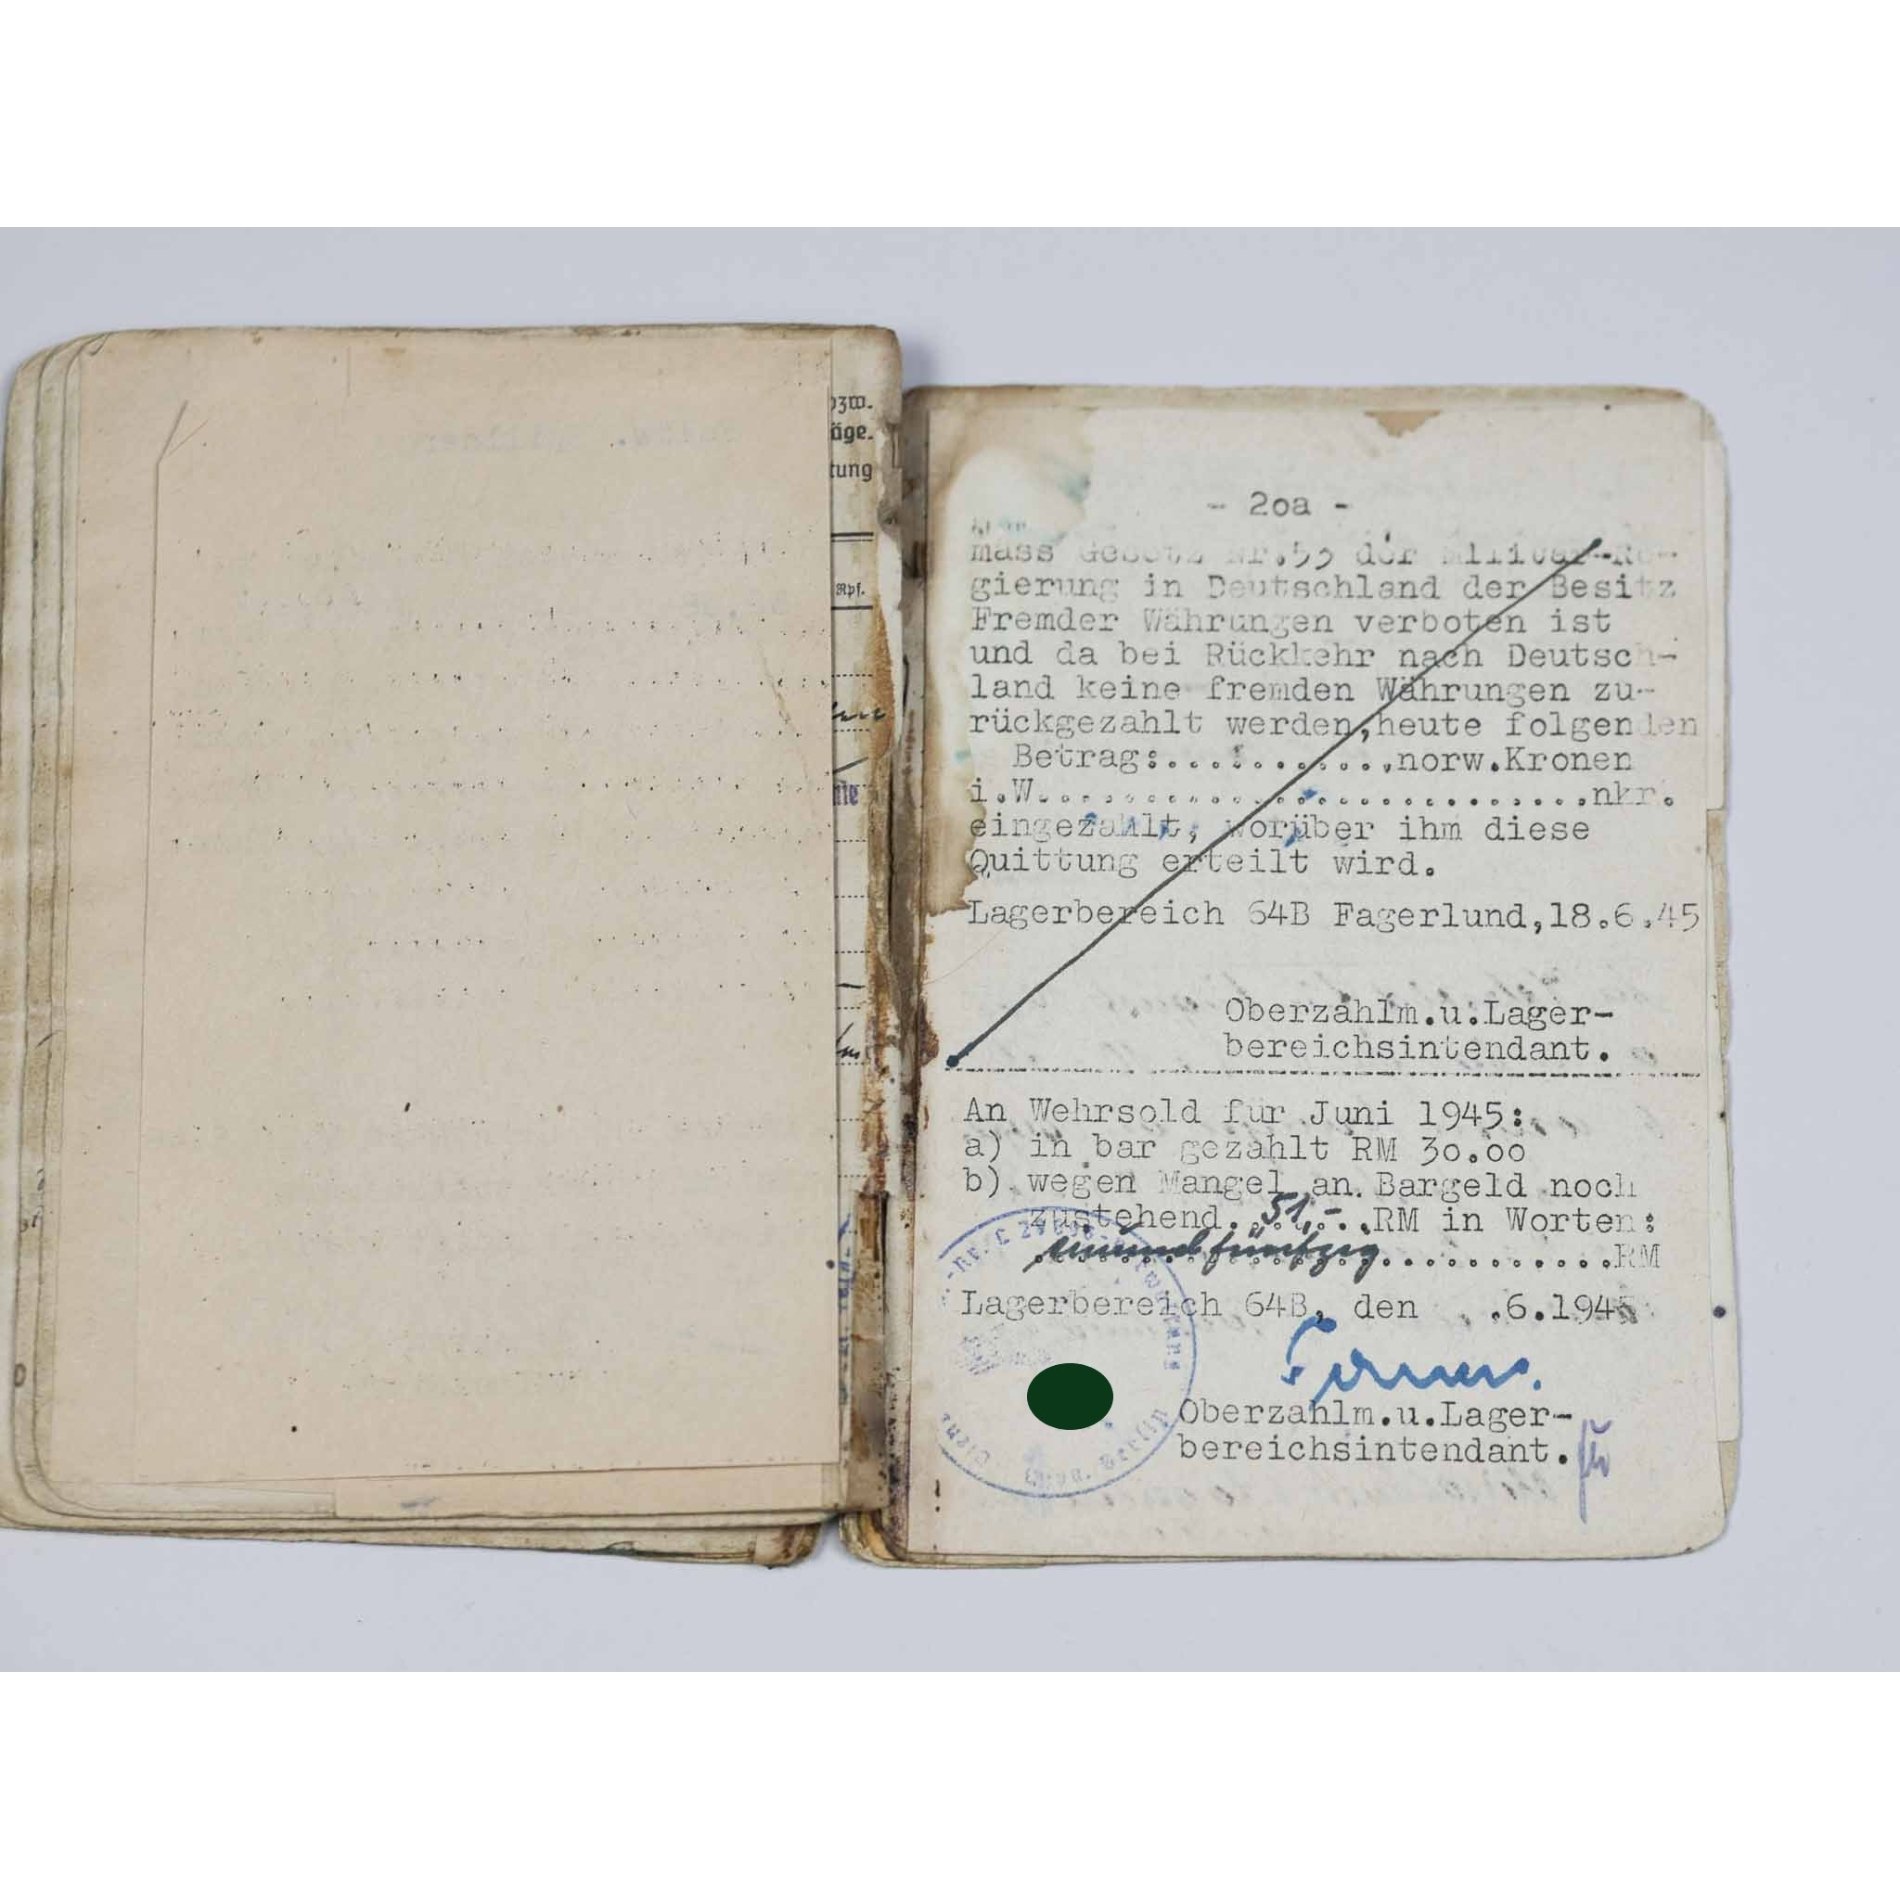 bzw.
äge.
tung
Rpf.
- 2oa -
mass Gesetz Nr.53 der Militär-Re-
gierung in Deutschland der Besitz
Fremder Währungen verboten ist
und da bei Rückkehr nach Deutsch-
land keine fremden Währungen zu-
rückgezahlt werden,heute folgenden
Betrag:............norw.Kronen
i.W..........................nkr.
eingezahlt, worüber ihm diese
Quittung erteilt wird.
Lagerbereich 64B Fagerlund,18.6.45
Oberzahlm.u.Lager-
bereichsintendant.
An Wehrsold für Juni 1945:
a) in bar gezahlt RM 30.00
b) wegen Mangel an Bargeld noch
zustehend. 51,- .RM in Worten:
einundfünfzig...........RM
Lagerbereich 64B, den .6.1945
Oberzahlm.u.Lager-
bereichsintendant.
Berlin